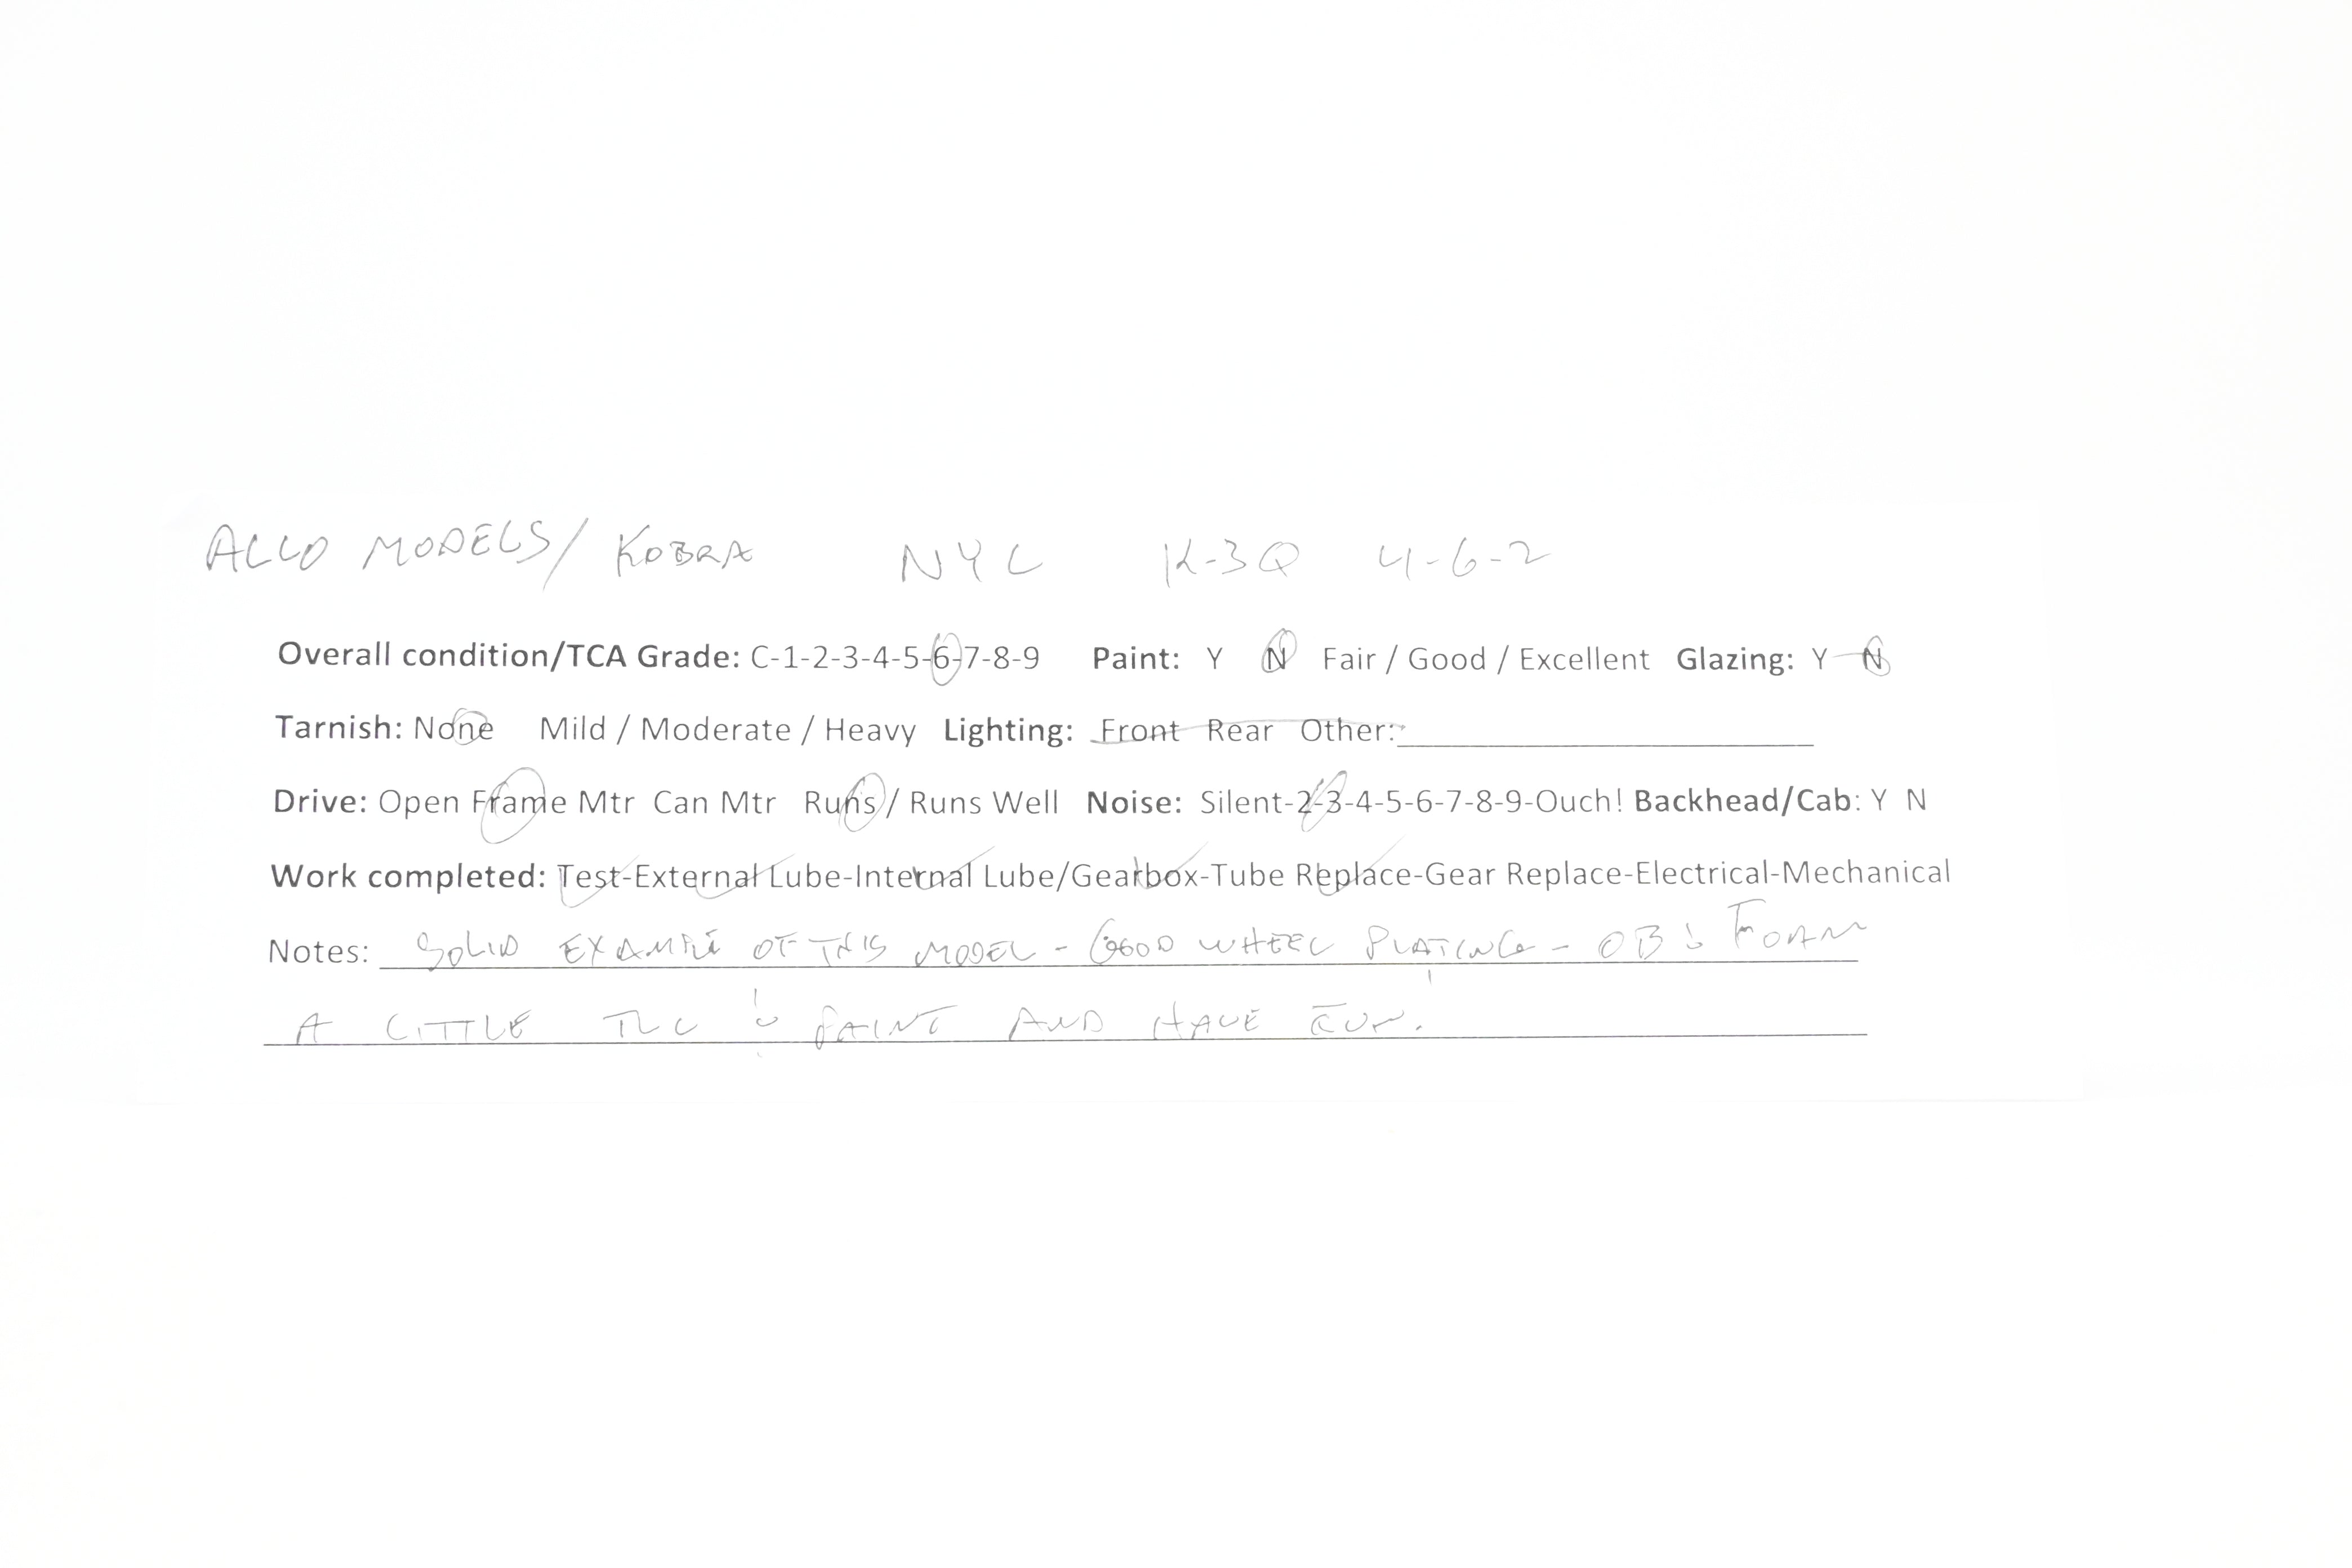 ALCO MODELS/ KOBRA NYC K-3Q 4-6-2
Overall condition/TCA Grade: C-1-2-3-4-5-6-7-8-9 Paint: Y N Fair / Good / Excellent Glazing: Y N
Tarnish: None Mild / Moderate / Heavy Lighting: Front Rear Other:
Drive: Open Frame Mtr Can Mtr Runs / Runs Well Noise: Silent-2-3-4-5-6-7-8-9-Ouch! Backhead/Cab: Y N
Work completed: Test-External Lube-Internal Lube/Gearbox-Tube Replace-Gear Replace-Electrical-Mechanical
Notes: SOLID EXAMPLE OF THIS MODEL - GOOD WHEEL PLATING - OB & FOAM
A LITTLE TLC & PAINT AND HAVE FUN.